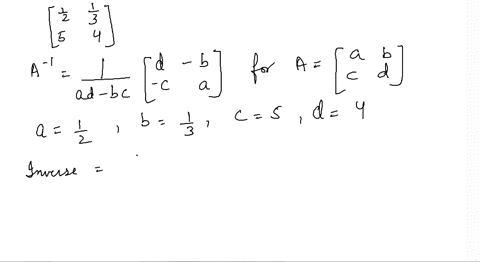 [ 1/2 1/3 ]
[ 5 4 ]
A⁻¹ = 1/(ad-bc) [ d -b ; -c a ] for A = [ a b ; c d ]
a = 1/2 , b = 1/3 , c = 5 , d = 4
Inverse =